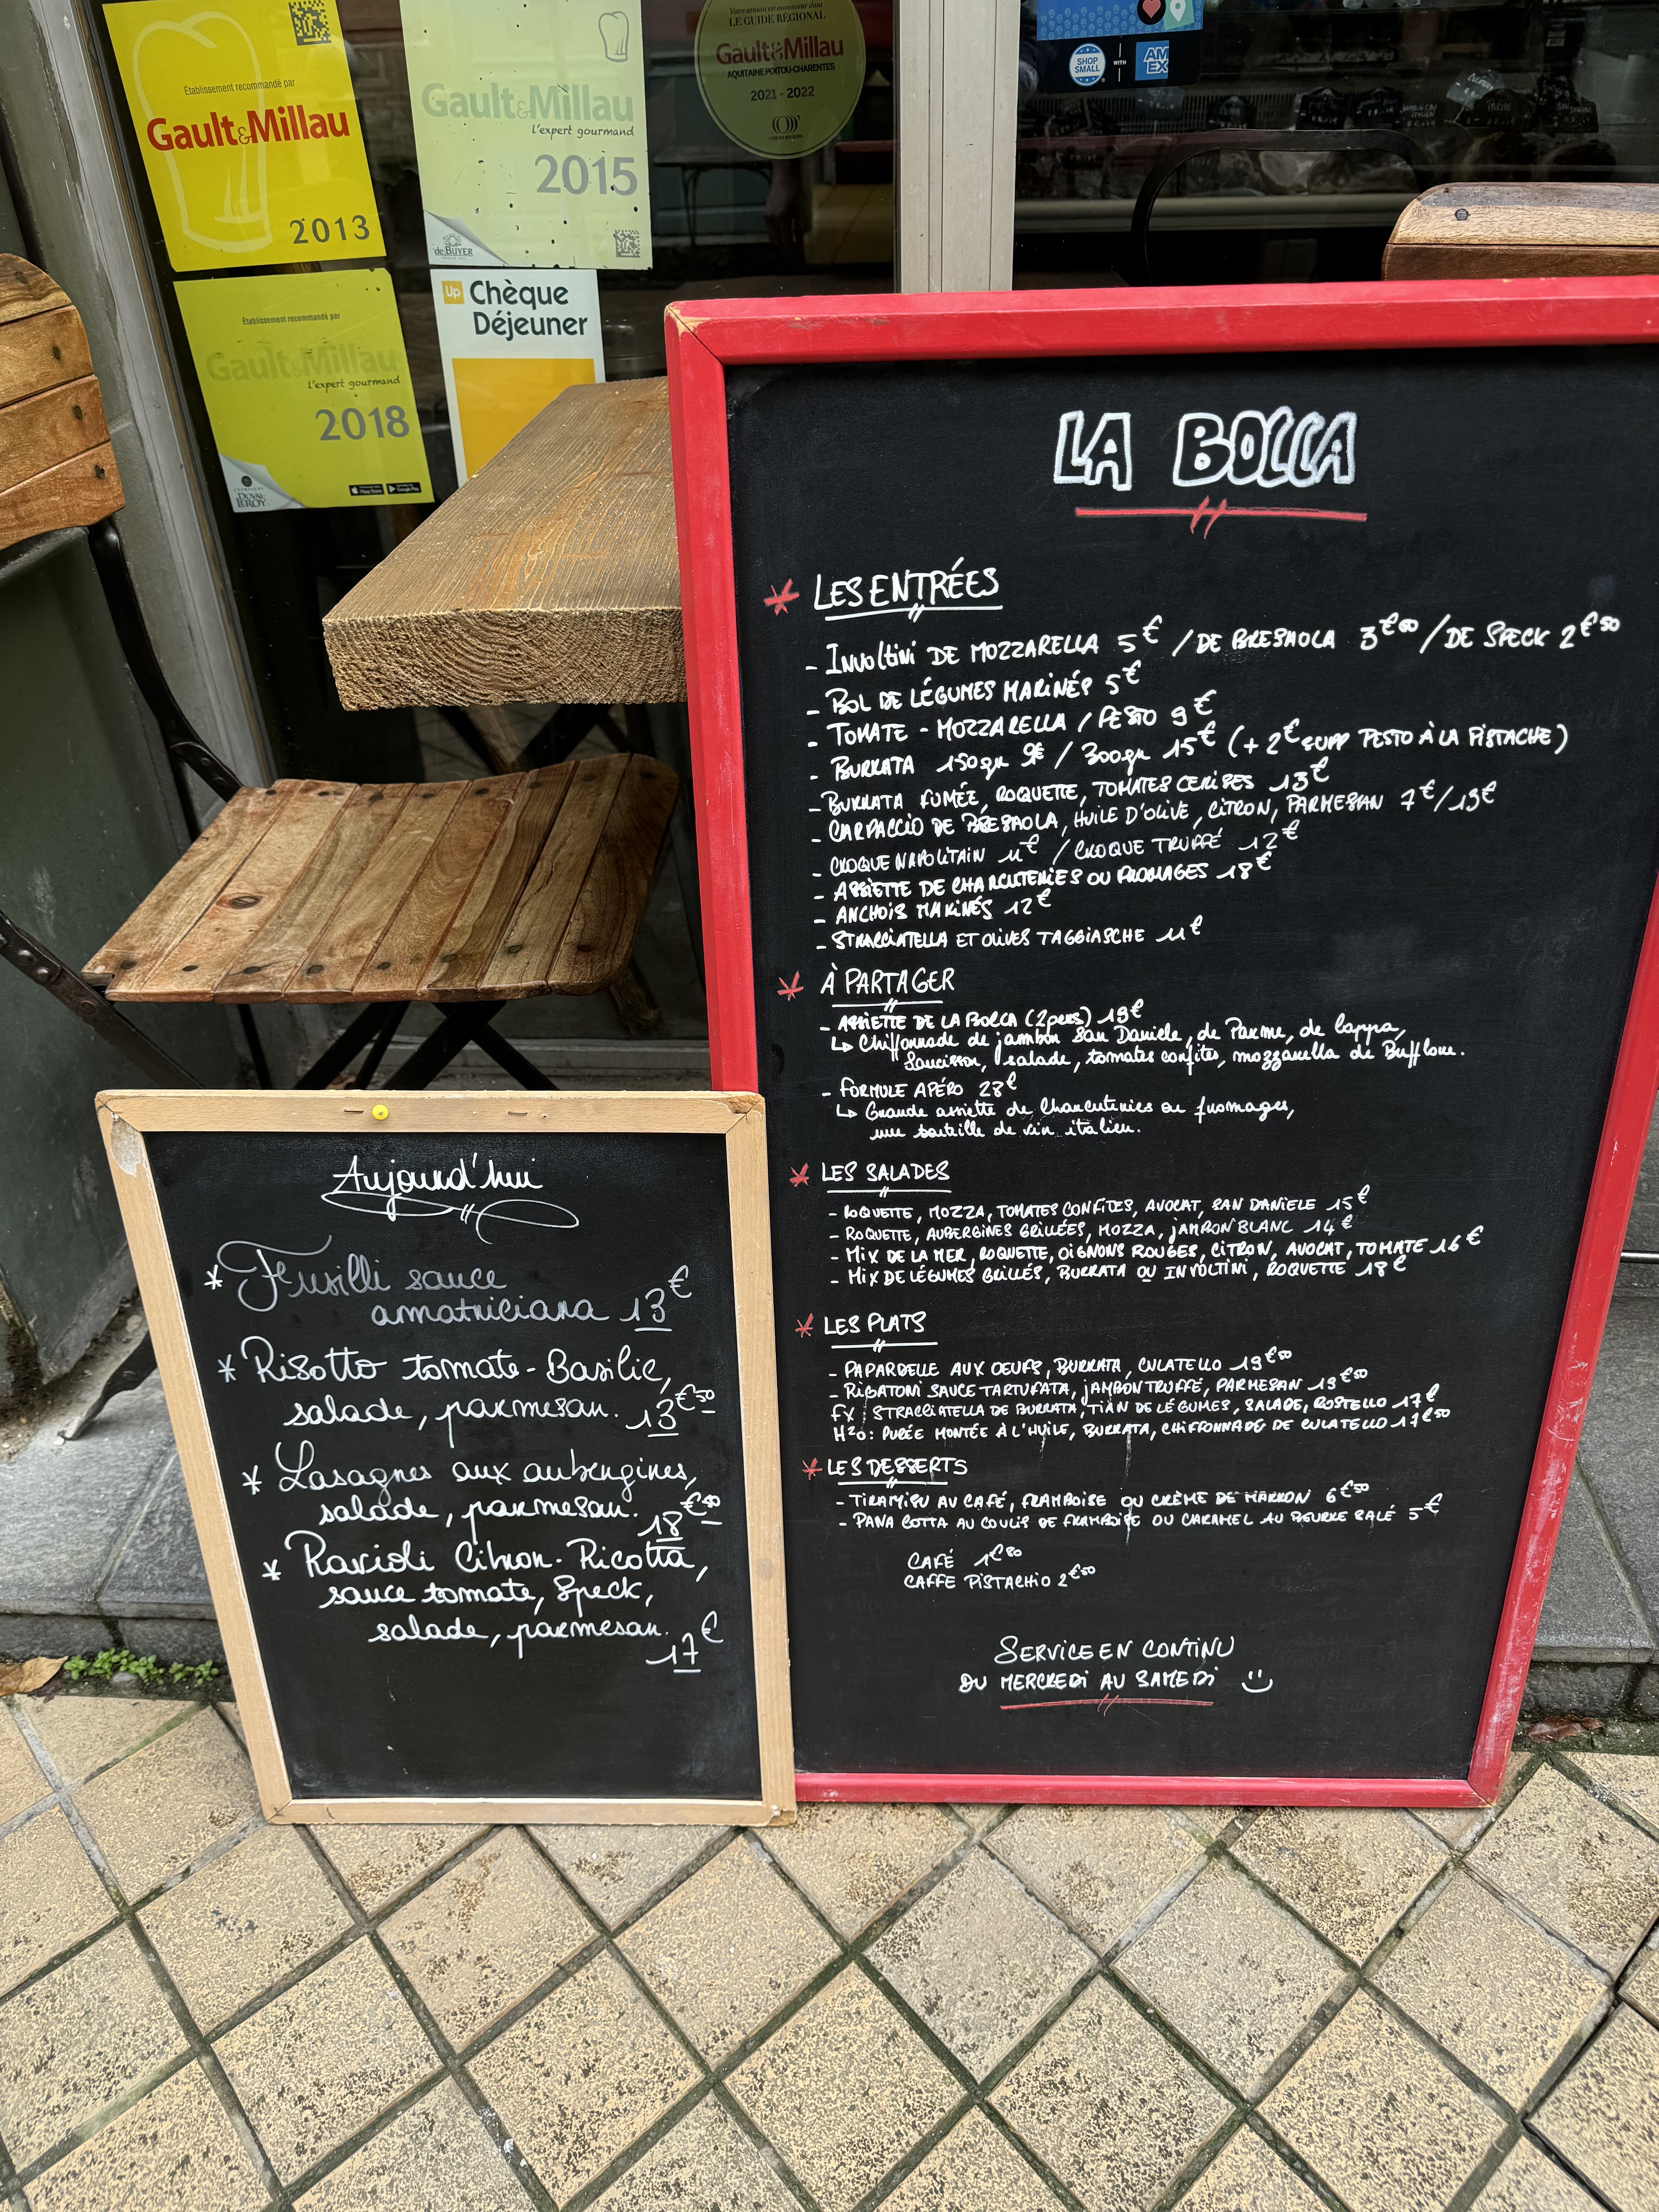 Établissement recommandé par
Gault&Millau
2013
Gault&Millau
L'expert gourmand
2015
de BUYER
Votre artisan est annonceur dans
LE GUIDE RÉGIONAL
Gault&Millau
AQUITAINE POITOU-CHARENTES
2021 - 2022
SHOP
SMALL
WITH
AM
EX
Établissement recommandé par
Gault&Millau
L'expert gourmand
2018
DUVAL
LEROY
Up Chèque
Déjeuner
LA BOCCA
LES ENTRÉES
- INVOLTINI DE MOZZARELLA 5€ / DE BRESAOLA 3€50 / DE SPECK 2€50
- BOL DE LÉGUMES MARINÉS 5€
- TOMATE - MOZZARELLA / PESTO 9€
- BURRATA 150gr 9€ / 300gr 15€ (+ 2€ SUPP PESTO À LA PISTACHE)
- BURRATA FUMÉE, ROQUETTE, TOMATES CERISES 13€
- CARPACCIO DE BRESAOLA, HUILE D'OLIVE, CITRON, PARMESAN 7€/13€
- CROQUE NAPOLITAIN 11€ / CROQUE TRUFFÉ 12€
- ASSIETTE DE CHARCUTERIES OU FROMAGES 18€
- ANCHOIS MARINÉS 12€
- STRACCIATELLA ET OLIVES TAGGIASCHE 11€
À PARTAGER
- ASSIETTE DE LA BOCCA (2pers) 19€
↳ Chiffonnade de jambon San Daniele, de Parme, de Coppa,
Saucisson, salade, tomates confites, mozzarella de Bufflone.
- FORMULE APÉRO 28€
↳ Grande assiette de Charcuteries ou fromages,
une bouteille de vin italien.
LES SALADES
- ROQUETTE, MOZZA, TOMATES CONFITES, AVOCAT, SAN DANIELE 15€
- ROQUETTE, AUBERGINES GRILLÉES, MOZZA, JAMBON BLANC 14€
- MIX DE LA MER, ROQUETTE, OIGNONS ROUGES, CITRON, AVOCAT, TOMATE 16€
- MIX DE LÉGUMES GRILLÉS, BURRATA OU INVOLTINI, ROQUETTE 18€
LES PLATS
- PAPARDELLE AUX OEUFS, BURRATA, CULATELLO 19€50
- RIGATONI SAUCE TARTUFATA, JAMBON TRUFFÉ, PARMESAN 19€50
FX : STRACCIATELLA DE BURRATA, TIAN DE LÉGUMES, SALADE, ROSTELLO 17€
H²O : PURÉE MONTÉE À L'HUILE, BURRATA, CHIFFONNADE DE CULATELLO 17€50
LES DESSERTS
- TIRAMISU AU CAFÉ, FRAMBOISE OU CRÈME DE MARRON 6€50
- PANA COTTA AU COULIS DE FRAMBOISE OU CARAMEL AU BEURRE SALÉ 5€
CAFÉ 1€80
CAFFE PISTACHIO 2€50
SERVICE EN CONTINU
DU MERCREDI AU SAMEDI
Aujourd'hui
* Fusilli sauce
amatriciana 13€
* Risotto tomate-Basilic,
salade, parmesan. 13€50
* Lasagnes aux aubergines,
salade, parmesan. 18€
* Ravioli Citron-Ricotta,
sauce tomate, Speck,
salade, parmesan.
17€